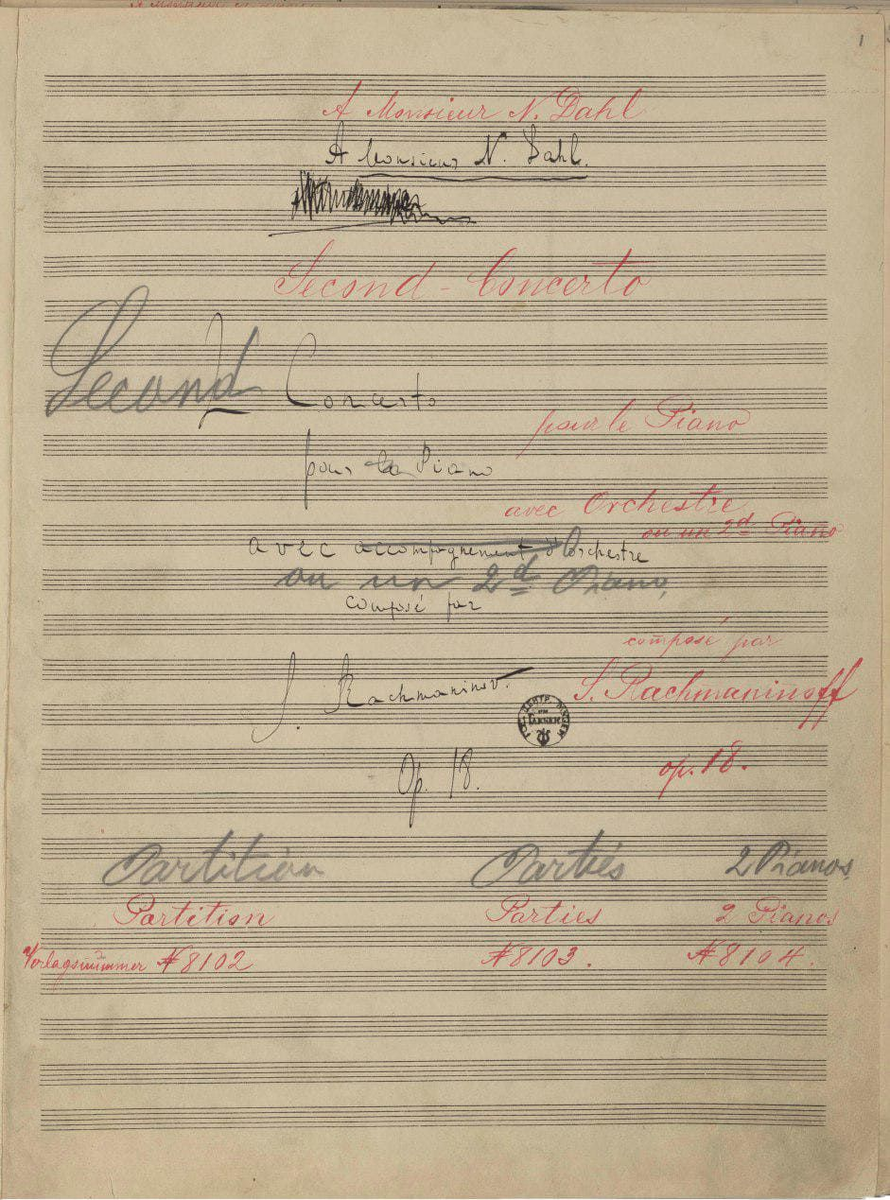 1
A Monsieur N. Dahl
A Monsieur N. Dahl.
Second - Concerto
Second Concerto
pour le Piano
pour le Piano
avec Orchestre
ou un 2d Piano
avec accompagnement d'Orchestre
ou un 2d Piano,
composé par
composé par
S. Rachmaninow.
S. Rachmaninoff
Op. 18.
op. 18.
Partition Parties 2 Pianos
Partition Parties 2 Pianos
Verlagsnummer N 8102 N 8103. N 8104.